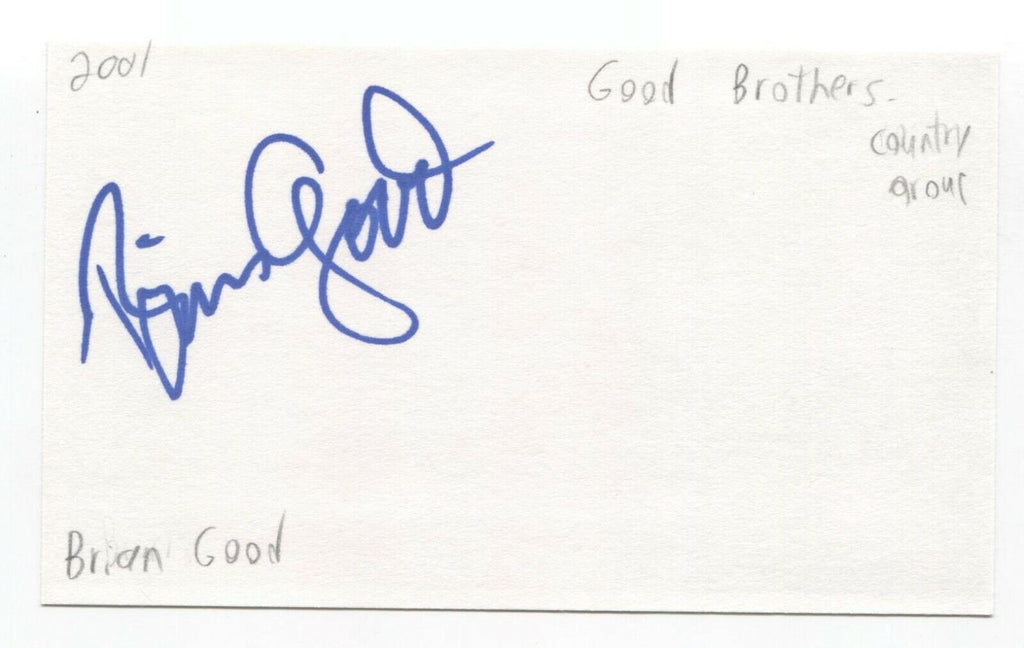 2001
Good Brothers-
country
group
Brian Good
Brian Good